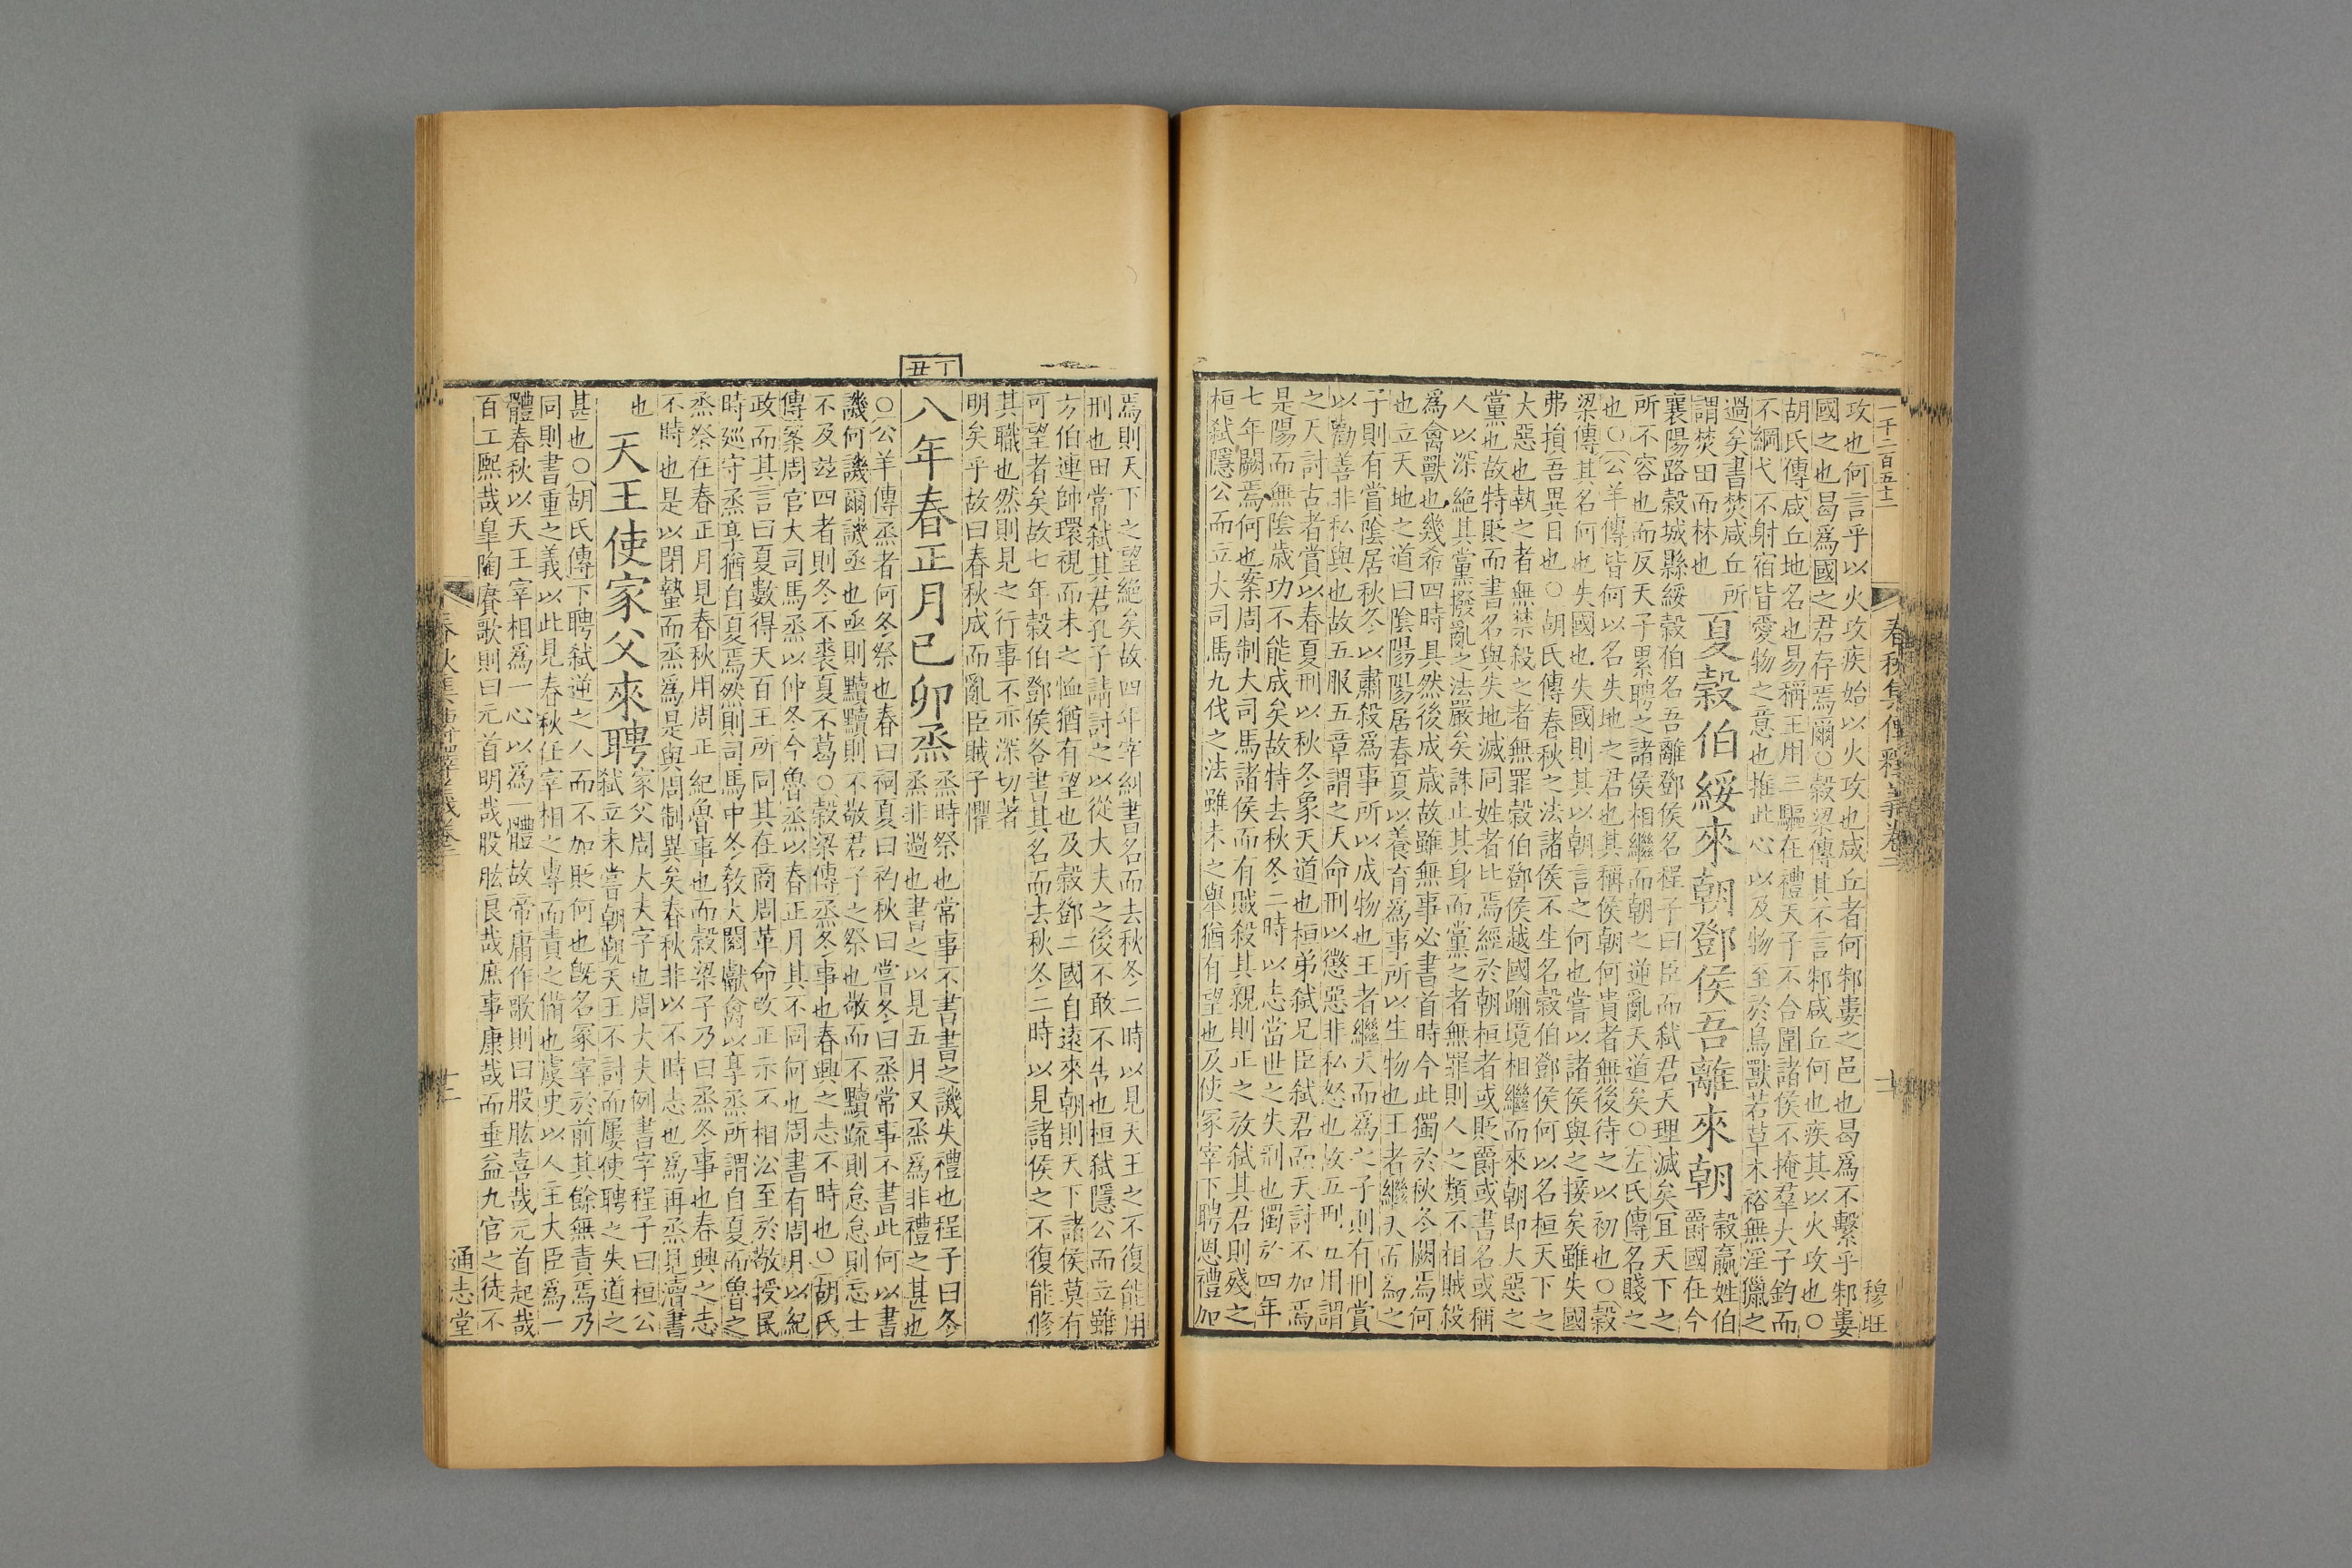 一千二百五十一
春秋集傳釋義卷二
十一
穆旺
攻也何言乎以火攻疾始以火攻也咸丘者何邾婁之邑也曷爲不繫乎邾婁
國之也曷爲國之君存焉爾○穀梁傳其不言邾咸丘何也疾其以火攻也○
胡氏傳咸丘地名也易稱王用三驅在禮天子不合圍諸侯不掩羣夫子釣而
不綱弋不射宿皆愛物之意也推此心以及物至於鳥獸若草木裕無淫獵之
過矣書焚咸丘所
謂焚田而秝也
夏穀伯綏來朝鄧侯吾離來朝
穀嬴姓伯
爵國在今
襄陽路穀城縣綏穀伯名吾離鄧侯名程子曰臣而弑君天理滅矣宜天下之
所不容也而反天子累聘之諸侯相繼而朝之逆亂天道矣○左氏傳名賤之
也○公羊傳皆何以名失地之君也其稱侯朝何貴者無後待之以初也○穀
梁傳其名何也失國也失國則其以朝言之何也嘗以諸侯與之接矣雖失國
弗損吾異日也○胡氏傳春秋之法諸侯不生名穀伯鄧侯何以名桓天下之
大惡也執之者無禁殺之者無罪穀伯鄧侯越國踰境相繼而來朝即大惡之
黨也故特貶而書名與失地滅同姓者比焉經於朝桓者或貶爵或書名或稱
人以深絶其黨撥亂之法嚴矣誅止其身而黨之者無罪則人之類不相賊殺
爲禽獸也幾希四時具然後成歲故雖無事必書首時今此獨於秋冬闕焉何
也立天地之道曰陰陽陽居春夏以養育爲事所以生物也王者繼天而爲之
子則有賞陰居秋冬以肅殺爲事所以成物也王者繼天而爲之子則有刑賞
以勸善非私與也故五服五章謂之天命刑以懲惡非私怒也故五刑五用謂
之天討古者賞以春夏刑以秋冬象天道也桓弟弑兄臣弑君而天討不加焉
是陽而無陰歲功不能成矣故特去秋冬二時以志當世之失刑也獨於四年
七年闕焉何也案周制大司馬諸侯而有賊殺其親則正之放弑其君則殘之
桓弑隱公而立大司馬九伐之法雖未之舉猶有望也及使冢宰下聘恩禮加
焉則天下之望絶矣故四年宰糾書名而去秋冬二時以見天王之不復能用
刑也田常弑其君孔子請討之以從大夫之後不敢不告也桓弑隱公而立雖
方伯連帥環視而未之恤猶有望也及穀鄧二國自遠來朝則天下諸侯莫有
可望者矣故七年穀伯鄧侯各書其名而去秋冬二時以見諸侯之不復能修
其職也然則見之行事不亦深切著
明矣乎故曰春秋成而亂臣賊子懼
丁丑
八年春正月己卯烝
烝時祭也常事不書書之譏失禮也程子曰冬
烝非過也書之以見五月又烝爲非禮之甚也
○公羊傳烝者何冬祭也春曰祠夏曰礿秋曰嘗冬曰烝常事不書此何以書
譏何譏爾譏亟也亟則黷黷則不敬君子之祭也敬而不黷疏則怠怠則忘士
不及玆四者則冬不裘夏不葛○穀梁傳烝冬事也春興之志不時也○胡氏
傳案周官大司馬烝以仲冬今魯烝以春正月其不同何也周書有周月以紀
政而其言曰夏數得天百王所同其在商周革命改正示不相㳂至於敬授民
時廵守烝享猶自夏焉然則司馬中冬敎大閱獻禽以享烝所謂自夏而魯之
烝祭在春正月見春秋用周正紀魯事也而穀梁子乃曰烝冬事也春興之志
不時也是以閉蟄而烝爲是與周制異矣春秋非以不時志也爲再烝見瀆書
也
天王使家父來聘
家父周大夫字也周大夫例書字程子曰桓公
弑立未嘗朝覲天王不討而屢使聘之失道之
甚也○胡氏傳下聘弑逆之人而不加貶何也旣名冢宰於前其餘無責焉乃
同則書重之義以此見春秋任宰相之專而責之備也虞史以人主大臣爲一
體春秋以天王宰相爲一心以爲一體故帝庸作歌則曰股肱喜哉元首起哉
百工熙哉臯陶賡歌則曰元首明哉股肱良哉庶事康哉而垂益九官之徒不
春秋集傳釋義卷二
十二
通志堂